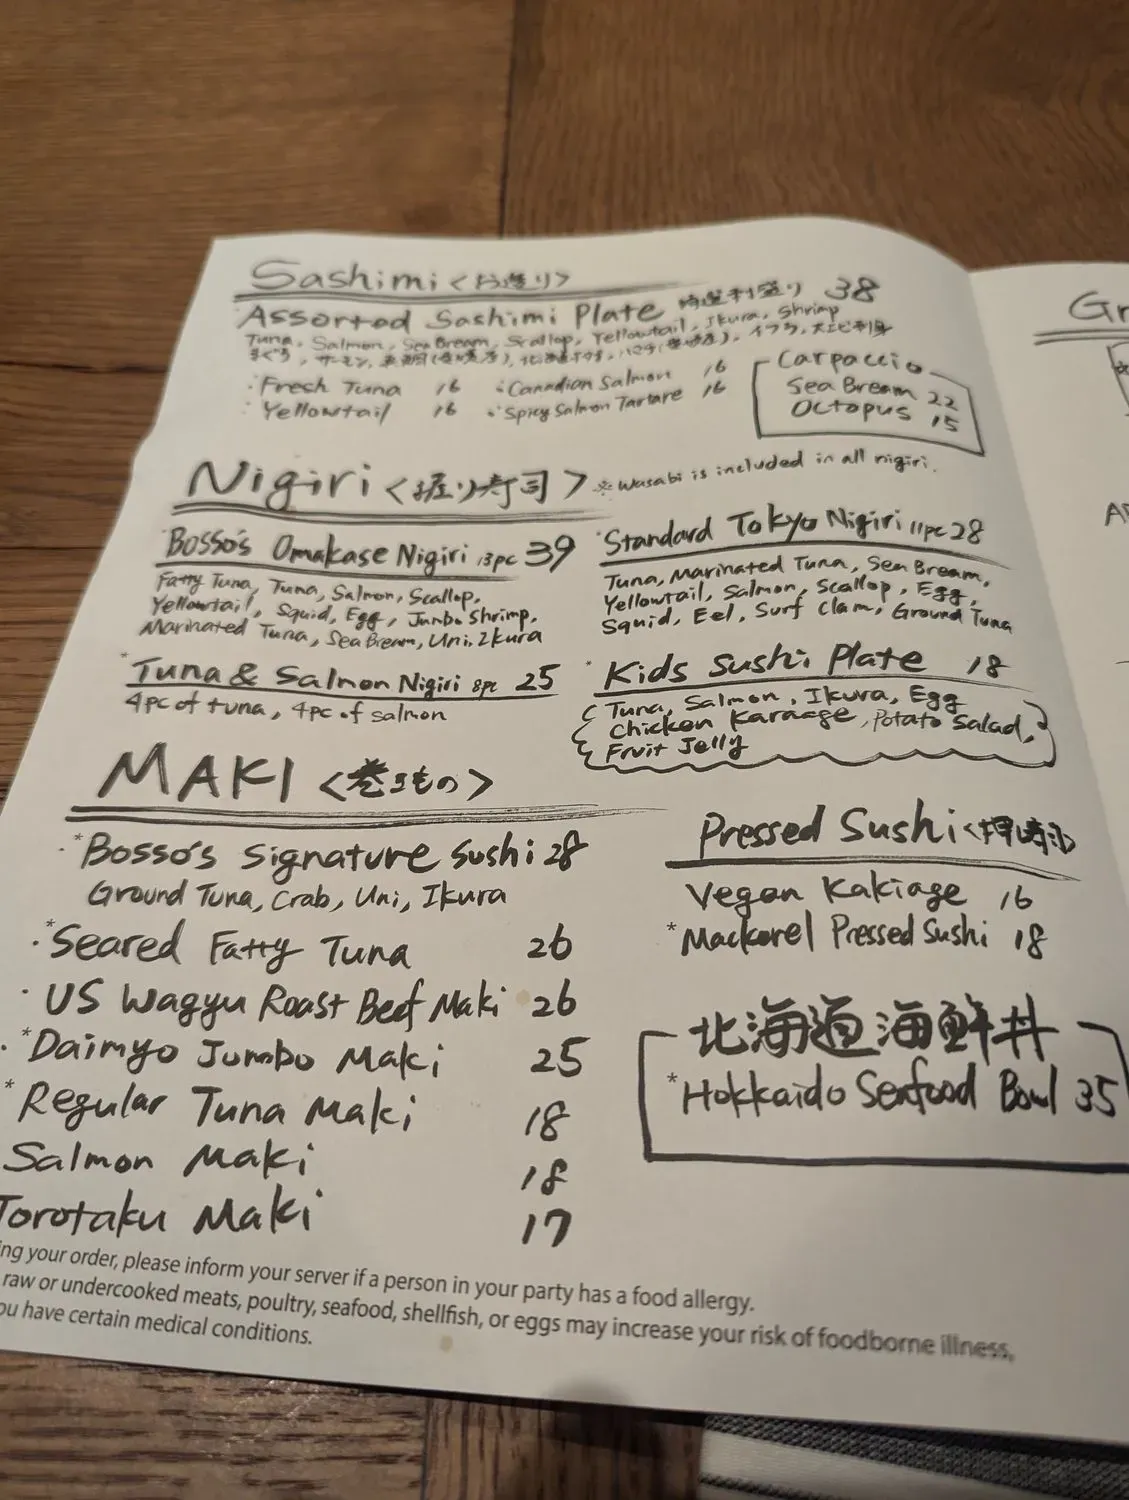 Sashimi <お造り>
Assorted Sashimi Plate 特選刺盛り 38
Tuna, Salmon, Sea Bream, Scallop, Yellowtail, Ikura, Shrimp
まぐろ, サーモン, イクラ,
・Fresh Tuna 16
・Yellowtail 16
・Canadian Salmon 16
・Spicy Salmon Tartare 16
Carpaccio
Sea Bream 22
Octopus 15
Nigiri <握り寿司> ※Wasabi is included in all nigiri.
Bosso's Omakase Nigiri 13pc 39
Fatty Tuna, Tuna, Salmon, Scallop,
Yellowtail, Squid, Egg, Jumbo Shrimp,
Marinated Tuna, Sea Bream, Uni, Ikura
*Tuna & Salmon Nigiri 8pc 25
4pc of tuna, 4pc of salmon
*Standard Tokyo Nigiri 11pc 28
Tuna, Marinated Tuna, Sea Bream,
Yellowtail, Salmon, Scallop, Egg,
Squid, Eel, Surf Clam, Ground Tuna
*Kids Sushi Plate 18
Tuna, Salmon, Ikura, Egg
Chicken Karaage, Potato Salad,
Fruit Jelly
MAKI <巻きもの>
・*Bosso's Signature Sushi 28
Ground Tuna, Crab, Uni, Ikura
・*Seared Fatty Tuna 26
・US Wagyu Roast Beef Maki 26
・*Daimyo Jumbo Maki 25
*Regular Tuna Maki 18
Salmon Maki 18
Torotaku Maki 17
Pressed Sushi <押寿司>
Vegan Kakiage 16
*Mackerel Pressed Sushi 18
北海道海鮮丼
*Hokkaido Seafood Bowl 35
ing your order, please inform your server if a person in your party has a food allergy.
raw or undercooked meats, poultry, seafood, shellfish, or eggs may increase your risk of foodborne illness,
ou have certain medical conditions.
Gr